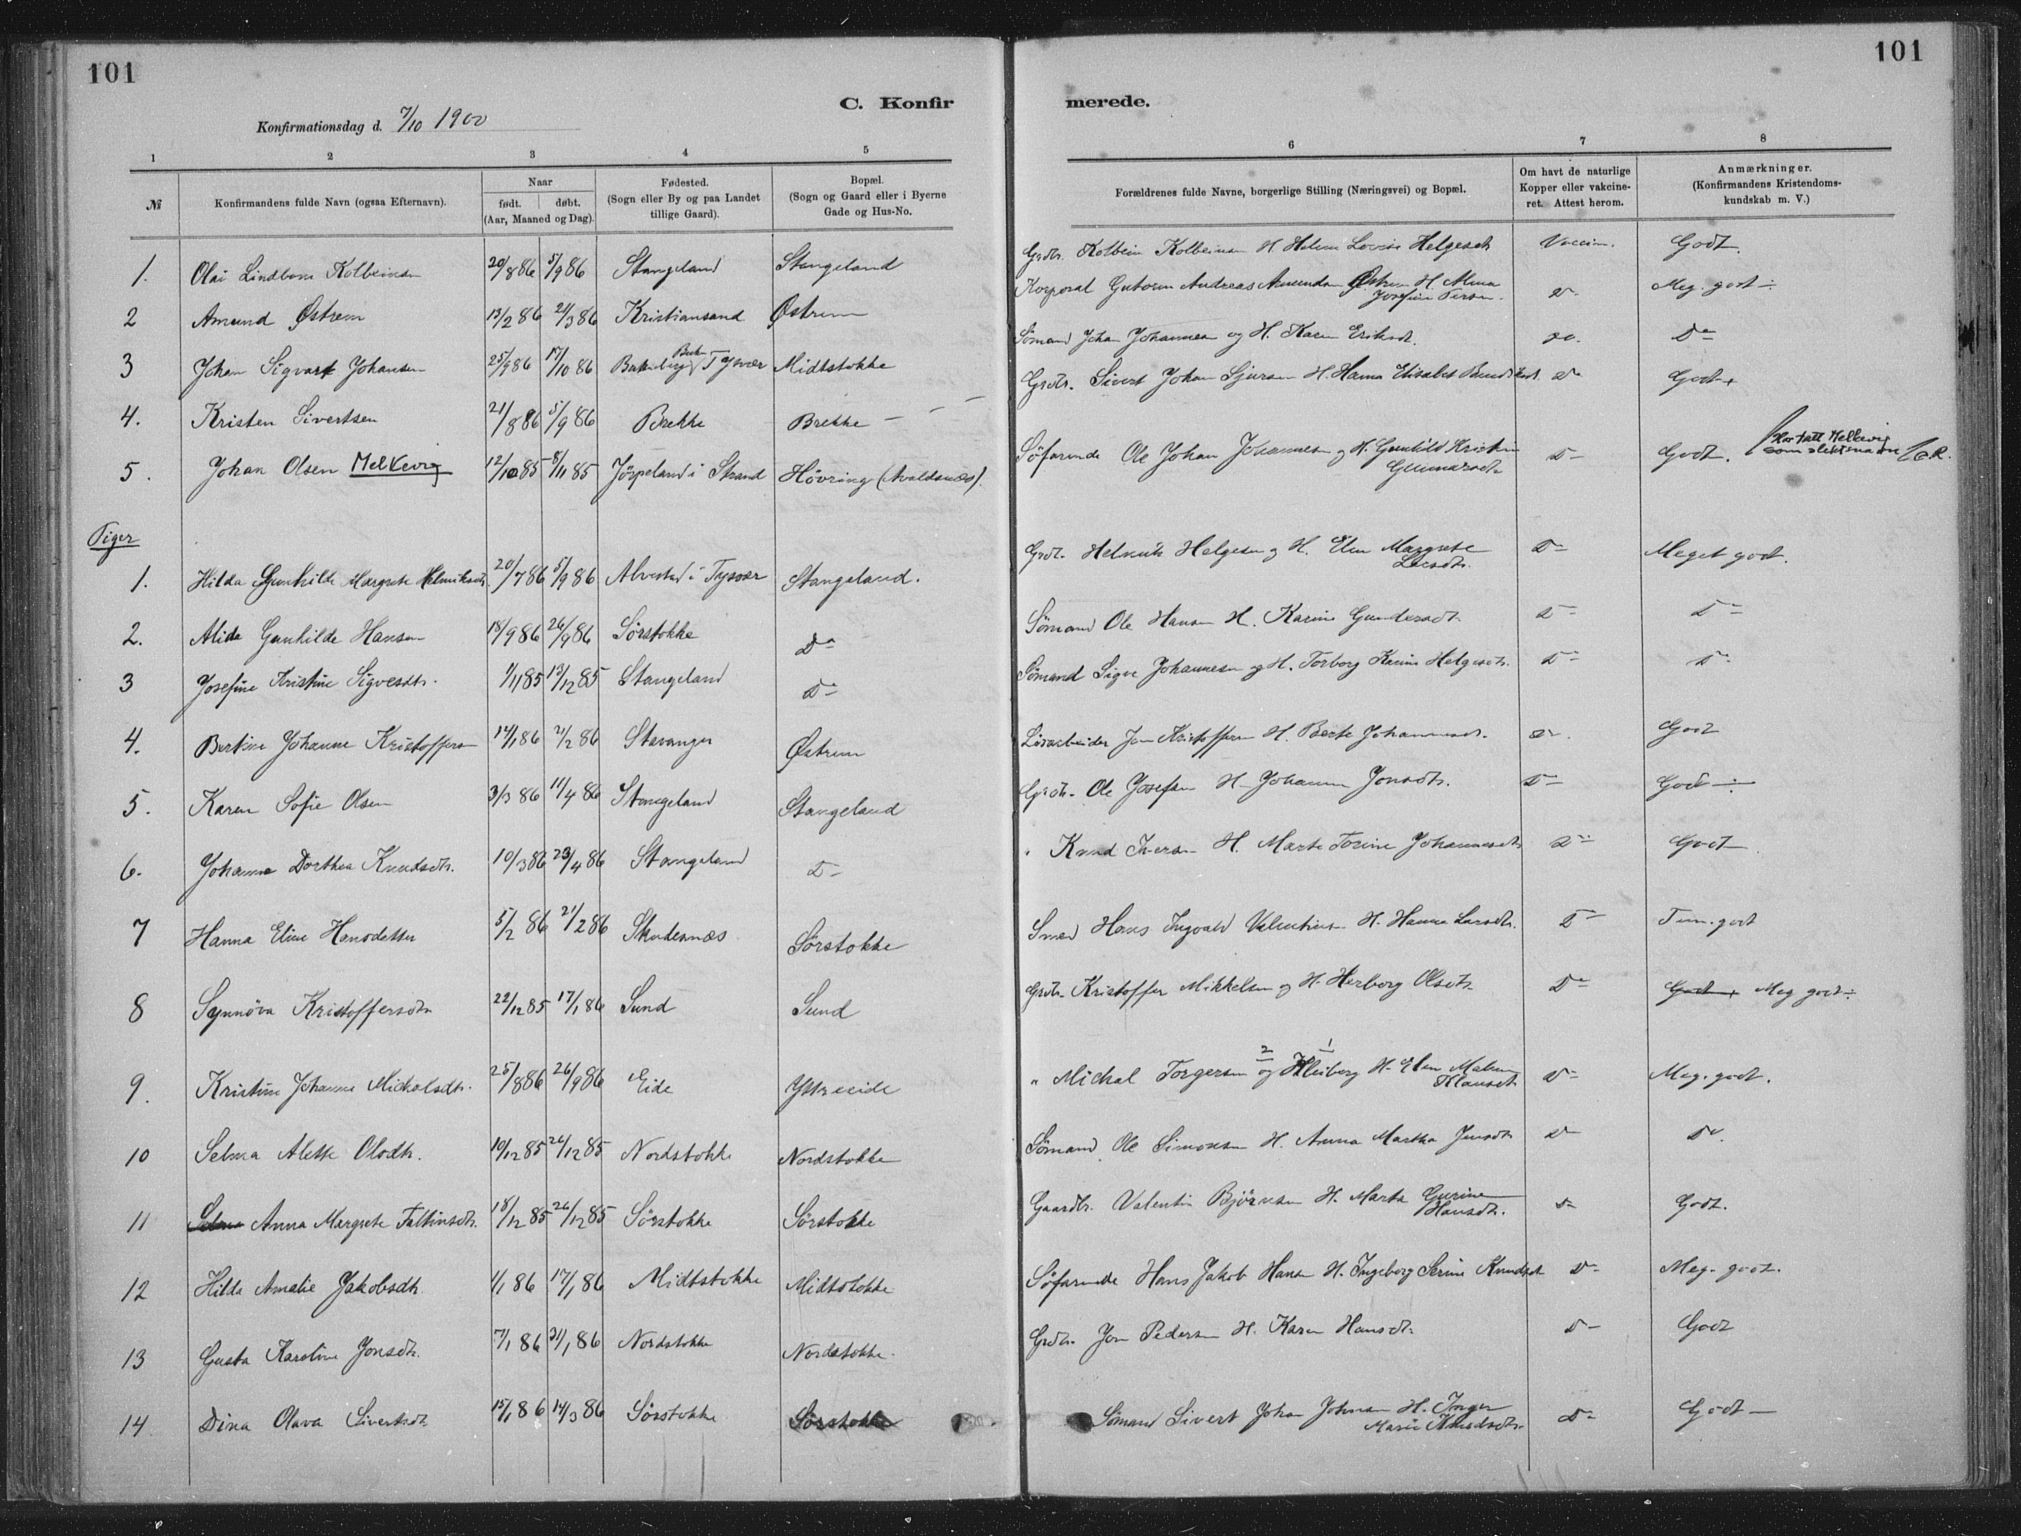 101
101
C. Konfir
merede.
Konfirmationsdag d. 7/10 1900
1 2 3 4 5 6 7 8
№
Konfirmandens fulde Navn (ogsaa Efternavn).
Naar
født. døbt.
(Aar, Maaned og Dag).
Fødested.
(Sogn eller By og paa Landet
tillige Gaard).
Bopæl.
(Sogn og Gaard eller i Byerne
Gade og Hus-No.
Forældrenes fulde Navne, borgerlige Stilling (Næringsvei) og Bopæl.
Om havt de naturlige
Kopper eller vakcine-
ret. Attest herom.
Anmærkninger.
(Konfirmandens Kristendoms-
kundskab m. V.)
1. Olai Kolbeinsen 20/8 86 5/9 86 Stangeland Stangeland Grdbr. Kolbein Kolbeinsen H. Helene Lovise Helgesdt. Vaccin. Godt.
2 Amund Østrem 13/2 86 21/3 86 Kristiansand Østrem Korporal Gutorm Andreas Amundsen Østrem H. Alma Josefine D- Meg. godt ÷
3 Johan Sigvart Johansen 25/9 86 17/10 86 Tysvær Midtstokke Sømand Johan Johannesen og H. Karen Eriksdt. D- D-
4. Kristen Sivertsen 21/8 86 5/9 86 Brekke Brekke Grdbr. Sivert Johan Sjursen H. Hanna Elisabet D- Godt+
5. Johan Olsen Melkevig 12/10 85 8/11 85 Jörpeland i Strand Hövring (Avaldsnæs). Søfarende Ole Johan Johannesen og H. Gunhild Kristine Gunnarsdt. D- Godt. Har tatt Melkevig som slektsnavn
Piger
1. Hilda Gunhilde Margrete Helmiksdt. 20/7 86 5/9 86 Alvested i Tysvær Stangeland. Grdbr. Helmik Helgesen og H. Elen Margrete Larsdt. D- Meget godt.
2. Alida Gunhilde Hansen 18/9 86 26/9 86 Sörstokke D- Sømand Ole Hansen H. Karine Gundersdt. D- D-
3 Josefine Kristine Sigvesdt. 1/11 85 13/12 85 Stangeland D- Sømand Sigve Johannesen og H. Torborg Karine Helgesdt. D- D-
4. Bertine Johanne Kristoffersen 14/1 86 2/2 86 Stavanger Østrem Löisarbeider Jon Kristoffersen H. Berte Johannesdt. D- Godt
5. Karen Sofie Olsen 3/3 86 11/4 86 Stangeland Stangeland Grdbr. Ole Josefsen H. Johanne Jonsdt. D- Godt ÷
6. Johanne Dorthea Knudsdt. 10/3 86 23/4 86 Stangeland D- " Knud Iversen H. Marte Torine Johannesdt. D- Godt
7 Hanna Eline Hansdetter 5/2 86 21/2 86 Skudesnæs Sörstokke Smed Hans Ingvald Valentinsen H. Hanna Larsdt. D- Tem. godt
8 Synnöva Kristoffersdtr. 22/12 85 17/1 86 Sund Sund Grdbr. Kristoffer Mikkelsen og H. Herborg Olsdt. D- Godt+ Meg godt÷
9. Kristine Johanne Mickalsdt. 25/8 86 26/9 86 Eide Yttreeide " Mickal Torgersen og H. Elen Malene D- Meg. godt.
10 Selma Alette Olsdt. 10/12 85 26/12 85 Nordstokke Nordstokke Sømand Ole Simonsen H. Anna Martha Jensdt. D- D-
11 Selma Anna Margrete Faltinsdt. 18/12 85 26/12 85 Sörstokke Sörstokke Gaardbr. Valentin Björnsen H. Marta Gurine Hansdt. D- Godt.
12 Hilda Amalie Jakobsdt. 1/1 86 17/1 86 Midtstokke Midtstokke Söfarende Hans Jakob Hansen H. Ingeborg Serine Knudsdt D- Meg. godt.
13 Gusta Karoline Jonsdt. 7/1 86 21/1 86 Nordstokke Nordstokke. Grdbr. Jon Pedersen H. Karen Hansdt. D- Godt
14 Dina Olava Sivertsdt. 15/1 86 14/3 86 Sörstokke Sörstokke Sömand Sivert Johan Johnsen H. Inger Marie Knudsdt. D- Godt -